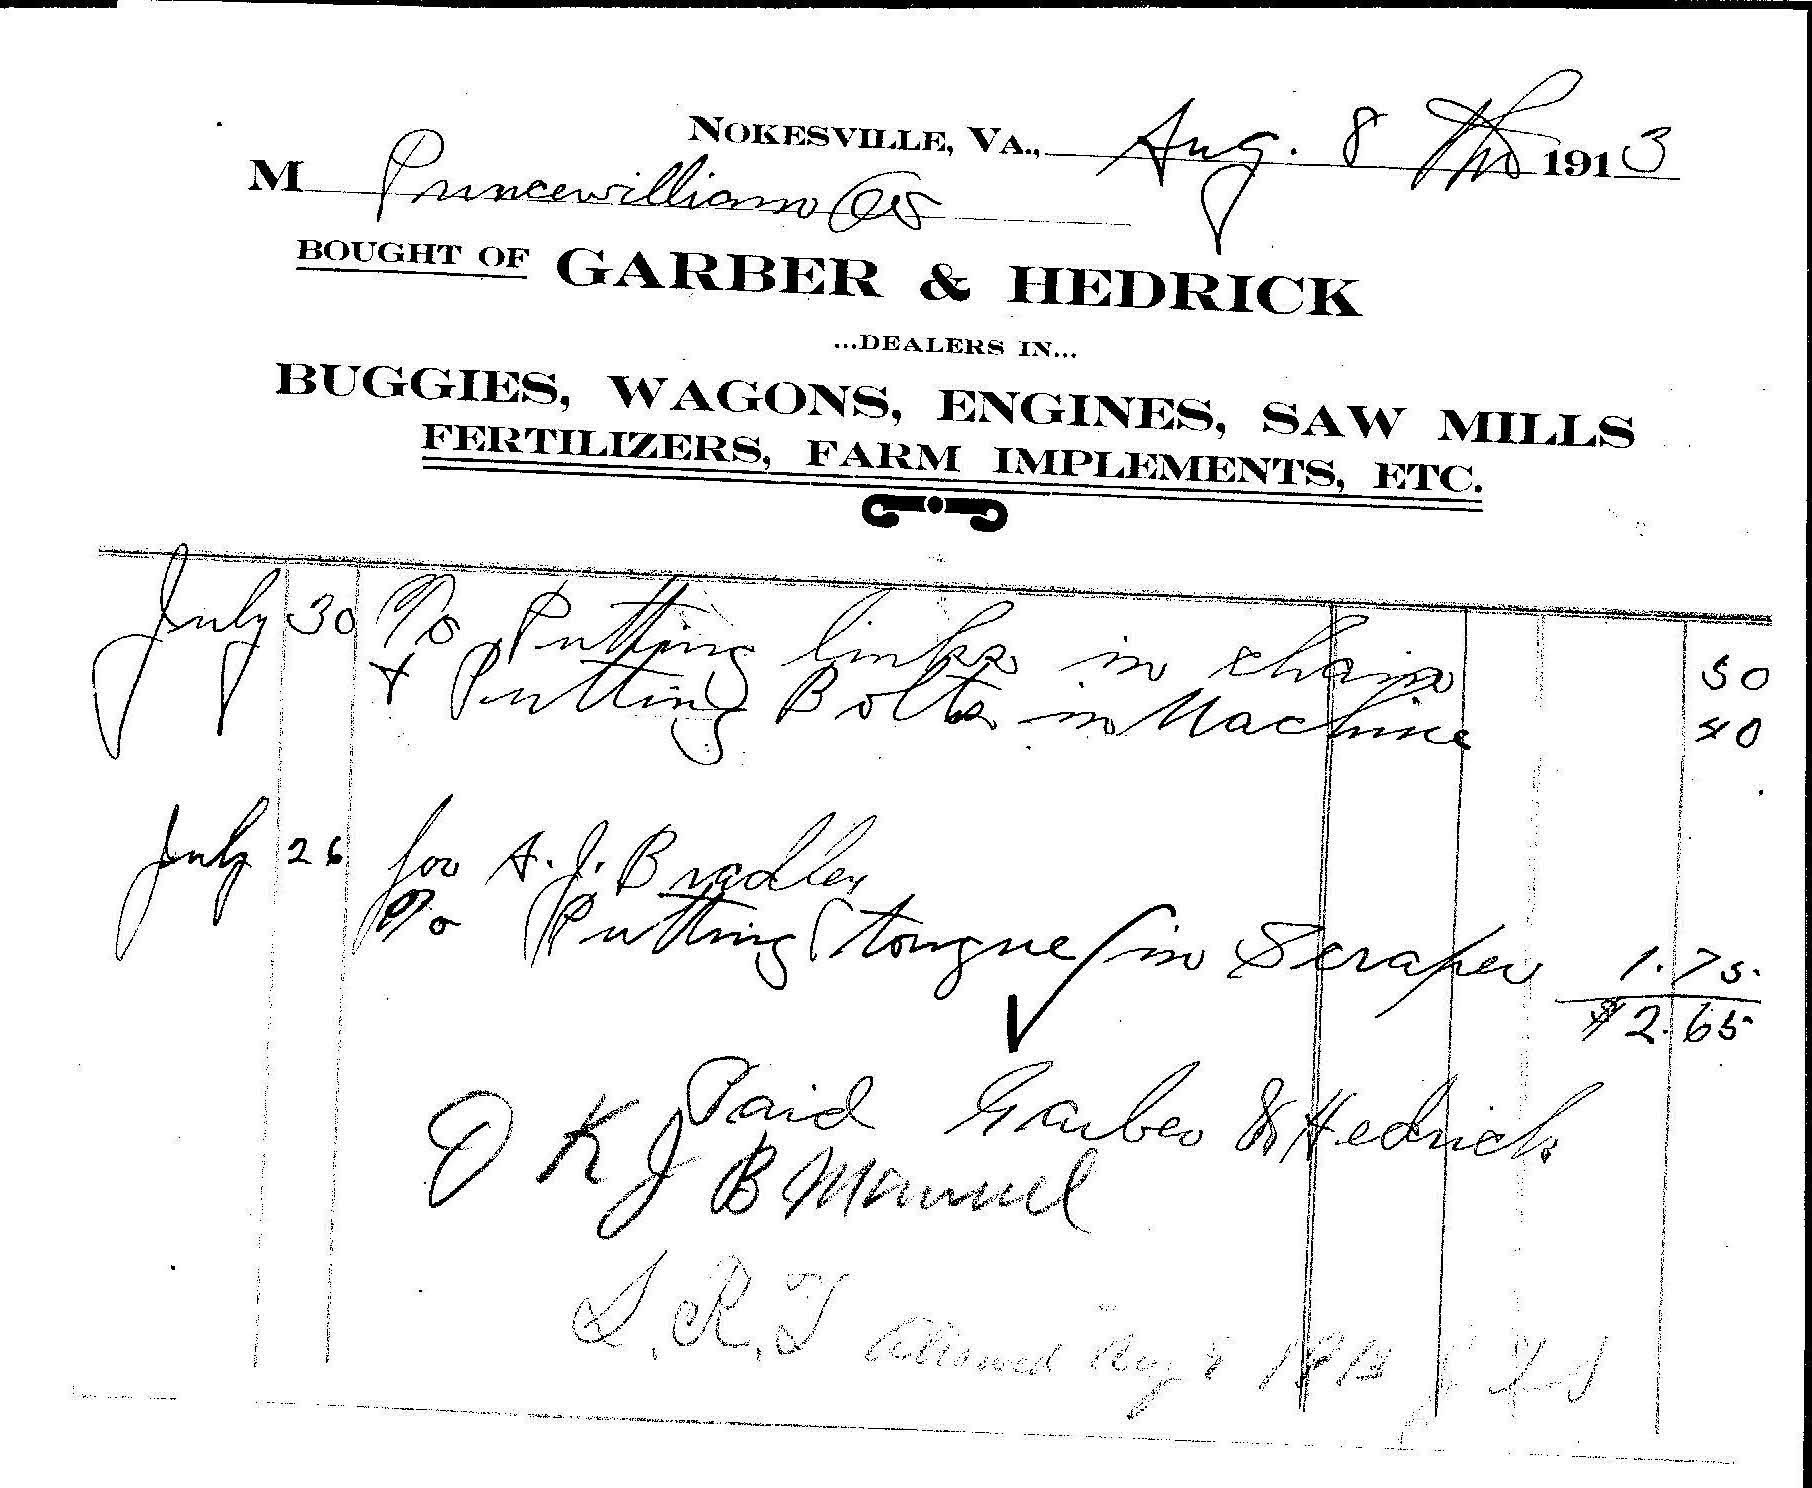 NOKESVILLE, VA., Aug. 8 th 1913
M Princewilliam Co
BOUGHT OF GARBER & HEDRICK
...DEALERS IN...
BUGGIES, WAGONS, ENGINES, SAW MILLS
FERTILIZERS, FARM IMPLEMENTS, ETC.
July 30 To Putting links in chain 50
+ Putting Bolts in Machine 40
July 26 for A. J. Bradley
To Putting tongue in Scraper 1.75
$2.65
Paid Garber & Hedrick
O K J B Manuel
allowed Aug 8 1913